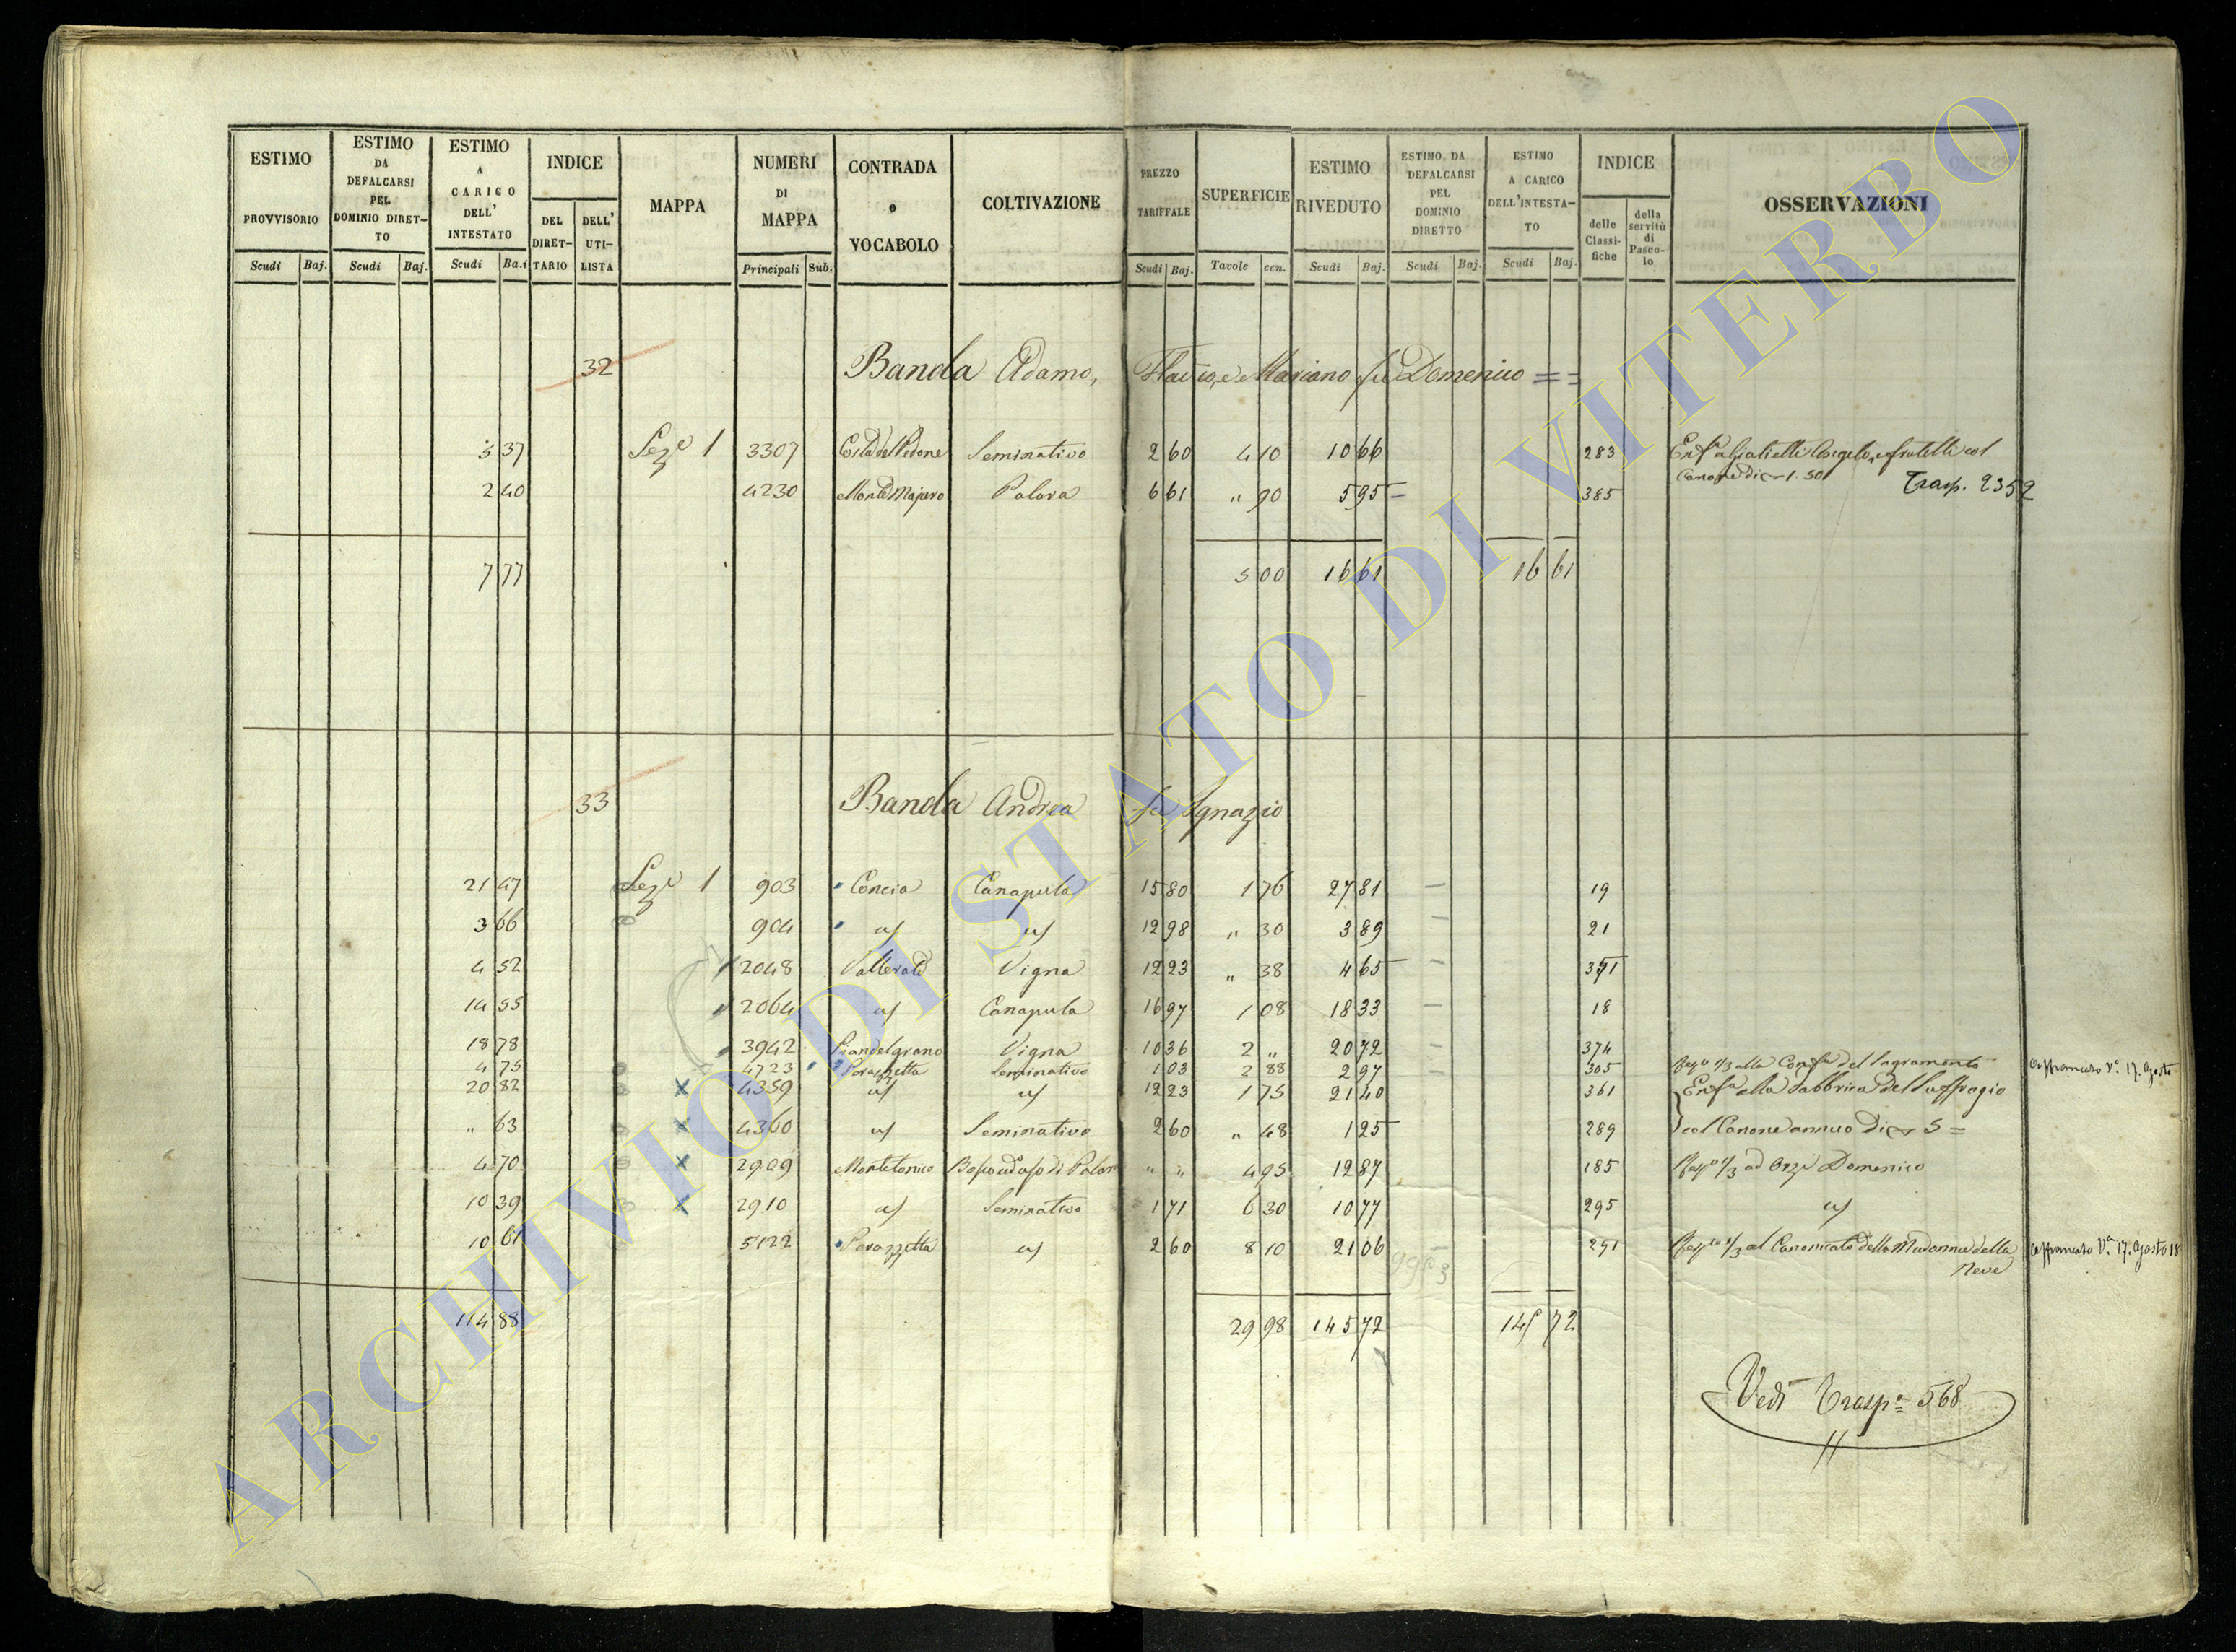 ESTIMO PROVVISORIO | ESTIMO DA DEFALCARSI PEL DOMINIO DIRET-TO | ESTIMO A CARICO DELL' INTESTATO | INDICE | MAPPA | NUMERI DI MAPPA | CONTRADA o VOCABOLO | COLTIVAZIONE | PREZZO TARIFFALE | SUPERFICIE | ESTIMO RIVEDUTO | ESTIMO DA DEFALCARSI PEL DOMINIO DIRETTO | ESTIMO A CARICO DELL'INTESTA-TO | INDICE | OSSERVAZIONI
DEL DIRET-TARIO | DELL' UTI-LISTA | delle Classi-fiche | della servitù di Pasco-lo
Scudi | Baj. | Scudi | Baj. | Scudi | Ba.i | Principali | Sub. | Scudi | Baj. | Tavole | cen. | Scudi | Baj. | Scudi | Baj. | Scudi | Baj.
32 Banda Adamo, e Mariano fu Domenico ==
5 37 Seze 1 3307 Costa del Pedone Seminativo 2 60 4 10 10 66 283 Angelo, e fratelli col
Canone di 1.50
2 40 4230 Monte Majuro 6 61 " 90 5 95 385 Trasp. 2352
7 77 5 00 16 61 16 61
33 Banda Andrea fu Ignazio
21 47 Seze 1 903 Concia Canapula 15 80 1 76 27 81 19
3 66 904 12 98 " 30 3 89 21
4 52 2048 Vigna 12 23 " 38 4 65 371
14 55 2064 Canapula 16 97 1 08 18 33 18
18 78 3942 Piandelgrano Vigna 10 36 2 " 20 72 374
4 75 4723 Perazzetta Seminativo 1 03 2 88 2 97 305 1/3 alla del Sagramento 17. Agosto
20 82 4359 12 23 1 75 21 40 361 alla Fabbrica del Suffragio
" 63 4360 Seminativo 2 60 " 48 1 25 289 col Canone annuo di 5=
4 70 2909 Montetonico " " 4 95 12 87 185 1/3 ad Domenico
10 39 2910 Seminativo 1 71 6 30 10 77 295
10 61 5122 Perazzetta 2 60 8 10 21 06 291 1/3 al Canonicato della Madonna della 17. Agosto 18
Neve
114 88 29 98 145 72 145 72
Vedi Trasp. 568
ARCHIVIO DI STATO DI VITERBO